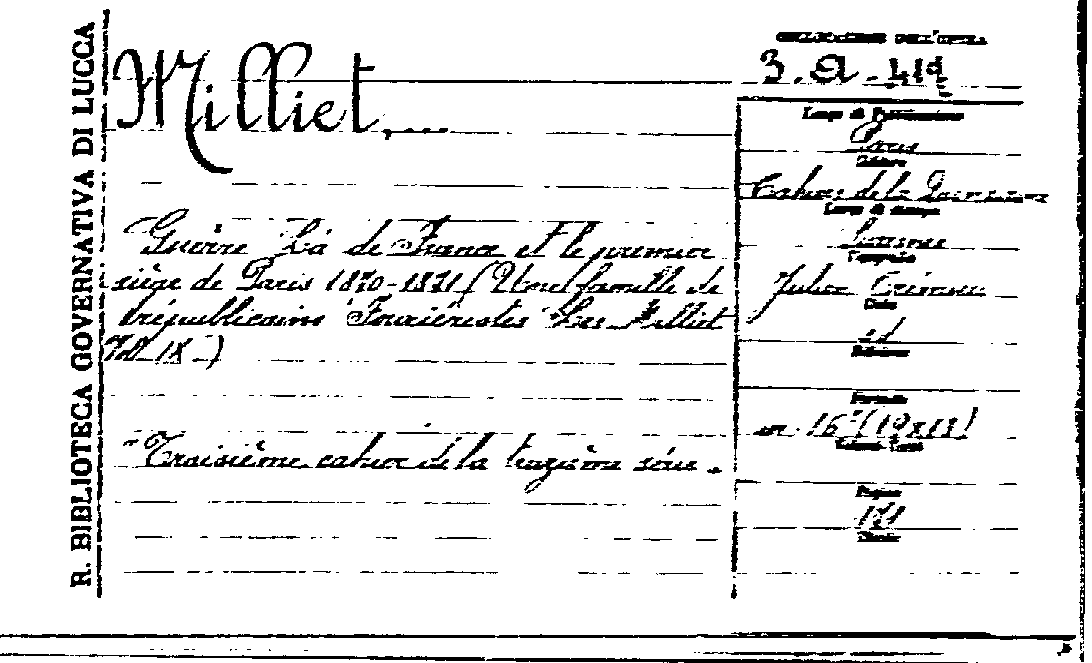 R. BIBLIOTECA GOVERNATIVA DI LUCCA
Milliet,...
Guerre de France et le premier
siège de Paris 1870-1871 (Une famille de
républicains Fouriéristes Les Milliet
Vol IX -)
"Troisième cahier de la trezième série -
COLLOCAZIONE DELL'OPERA
3. a. 419
Luogo di Pubblicazione
Paris
Editore
Cahiers de la Quinzaine
Luogo di stampa
Tipografia
Data
Edizione
Formato
in 16° (19x13)
Pagine